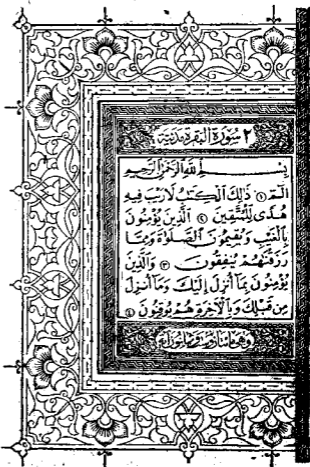 ٢ سورة البقرة مدنية
بسم الله الرحمن الرحيم
الٓمٓ ١ ذَٰلِكَ ٱلْكِتَٰبُ لَا رَيْبَ فِيهِ
هُدًى لِلْمُتَّقِينَ ٢ ٱلَّذِينَ يُؤْمِنُونَ
بِٱلْغَيْبِ وَيُقِيمُونَ ٱلصَّلَاةَ وَمِمَّا
رَزَقْنَٰهُمْ يُنفِقُونَ ٣ وَٱلَّذِينَ
يُؤْمِنُونَ بِمَآ أُنزِلَ إِلَيْكَ وَمَآ أُنزِلَ
مِن قَبْلِكَ وَبِٱلْآخِرَةِ هُمْ يُوقِنُونَ ٤